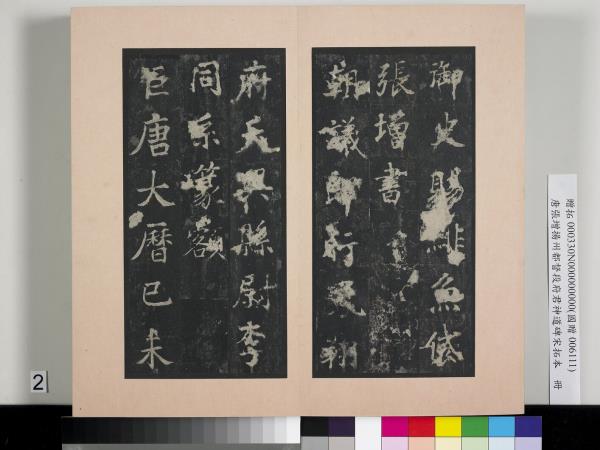 御史賜緋魚袋
張增書
朝議郎行
府天興縣尉李
同系篆額
巨唐大曆己未
贈拓 000330N000000000(國贈 006111)
唐張增揚州都督段府君神道碑宋拓本 冊
2